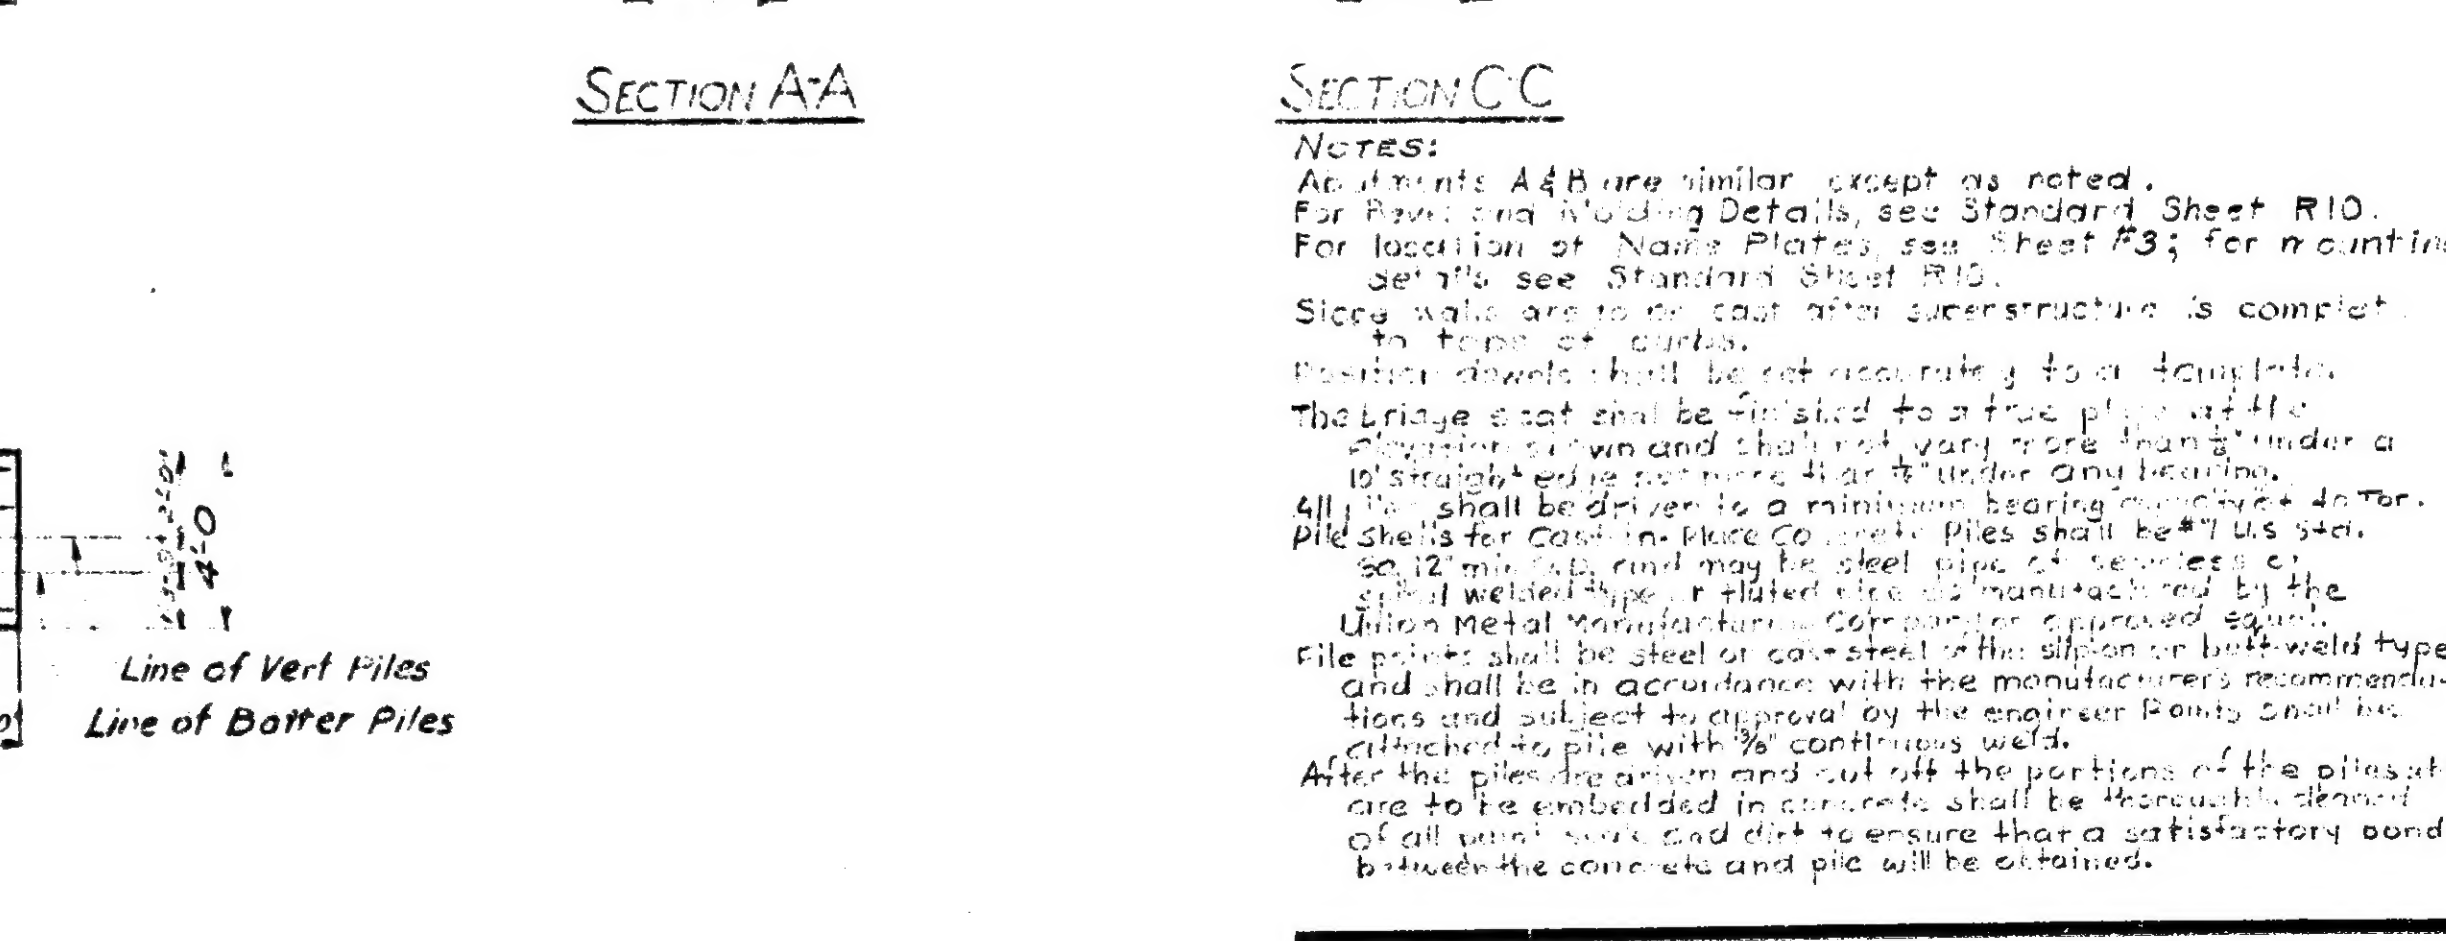 SECTION A-A
SECTION C-C
NOTES:
Abutments A & B are similar except as noted.
For Bevel and Molding Details, see Standard Sheet R10.
For location of Name Plates, see Sheet #3; for mounting
details see Standard Sheet R10.
Slope walls are to be cast after superstructure is complete
to tops of curbs.
Position dowels shall be set accurately to a template.
The bridge seat shall be finished to a true plane at the
elevation shown and shall not vary more than 1/8" under a
10' straight edge nor more than under any bearing.
All piles shall be driven to a minimum bearing capacity of Ton.
Pile Shells for Cast-in-Place Concrete Piles shall be #7 U.S. Std.
Ga, 12" min. O.D. and may be steel pipe of seamless or
spiral welded type or fluted pipe as manufactured by the
Union Metal Manufacturing Company or approved equal.
Pile points shall be steel or cast steel of the slip-on or butt-weld type
and shall be in accordance with the manufacturer's recommenda-
tions and subject to approval by the engineer Points shall be
attached to pile with 3/8" continuous weld.
After the piles are driven and cut off the portions of the piles
are to be embedded in concrete shall be thoroughly cleaned
of all paint and dirt to ensure that a satisfactory bond
between the concrete and pile will be obtained.
4'-0
Line of Vert Piles
Line of Batter Piles